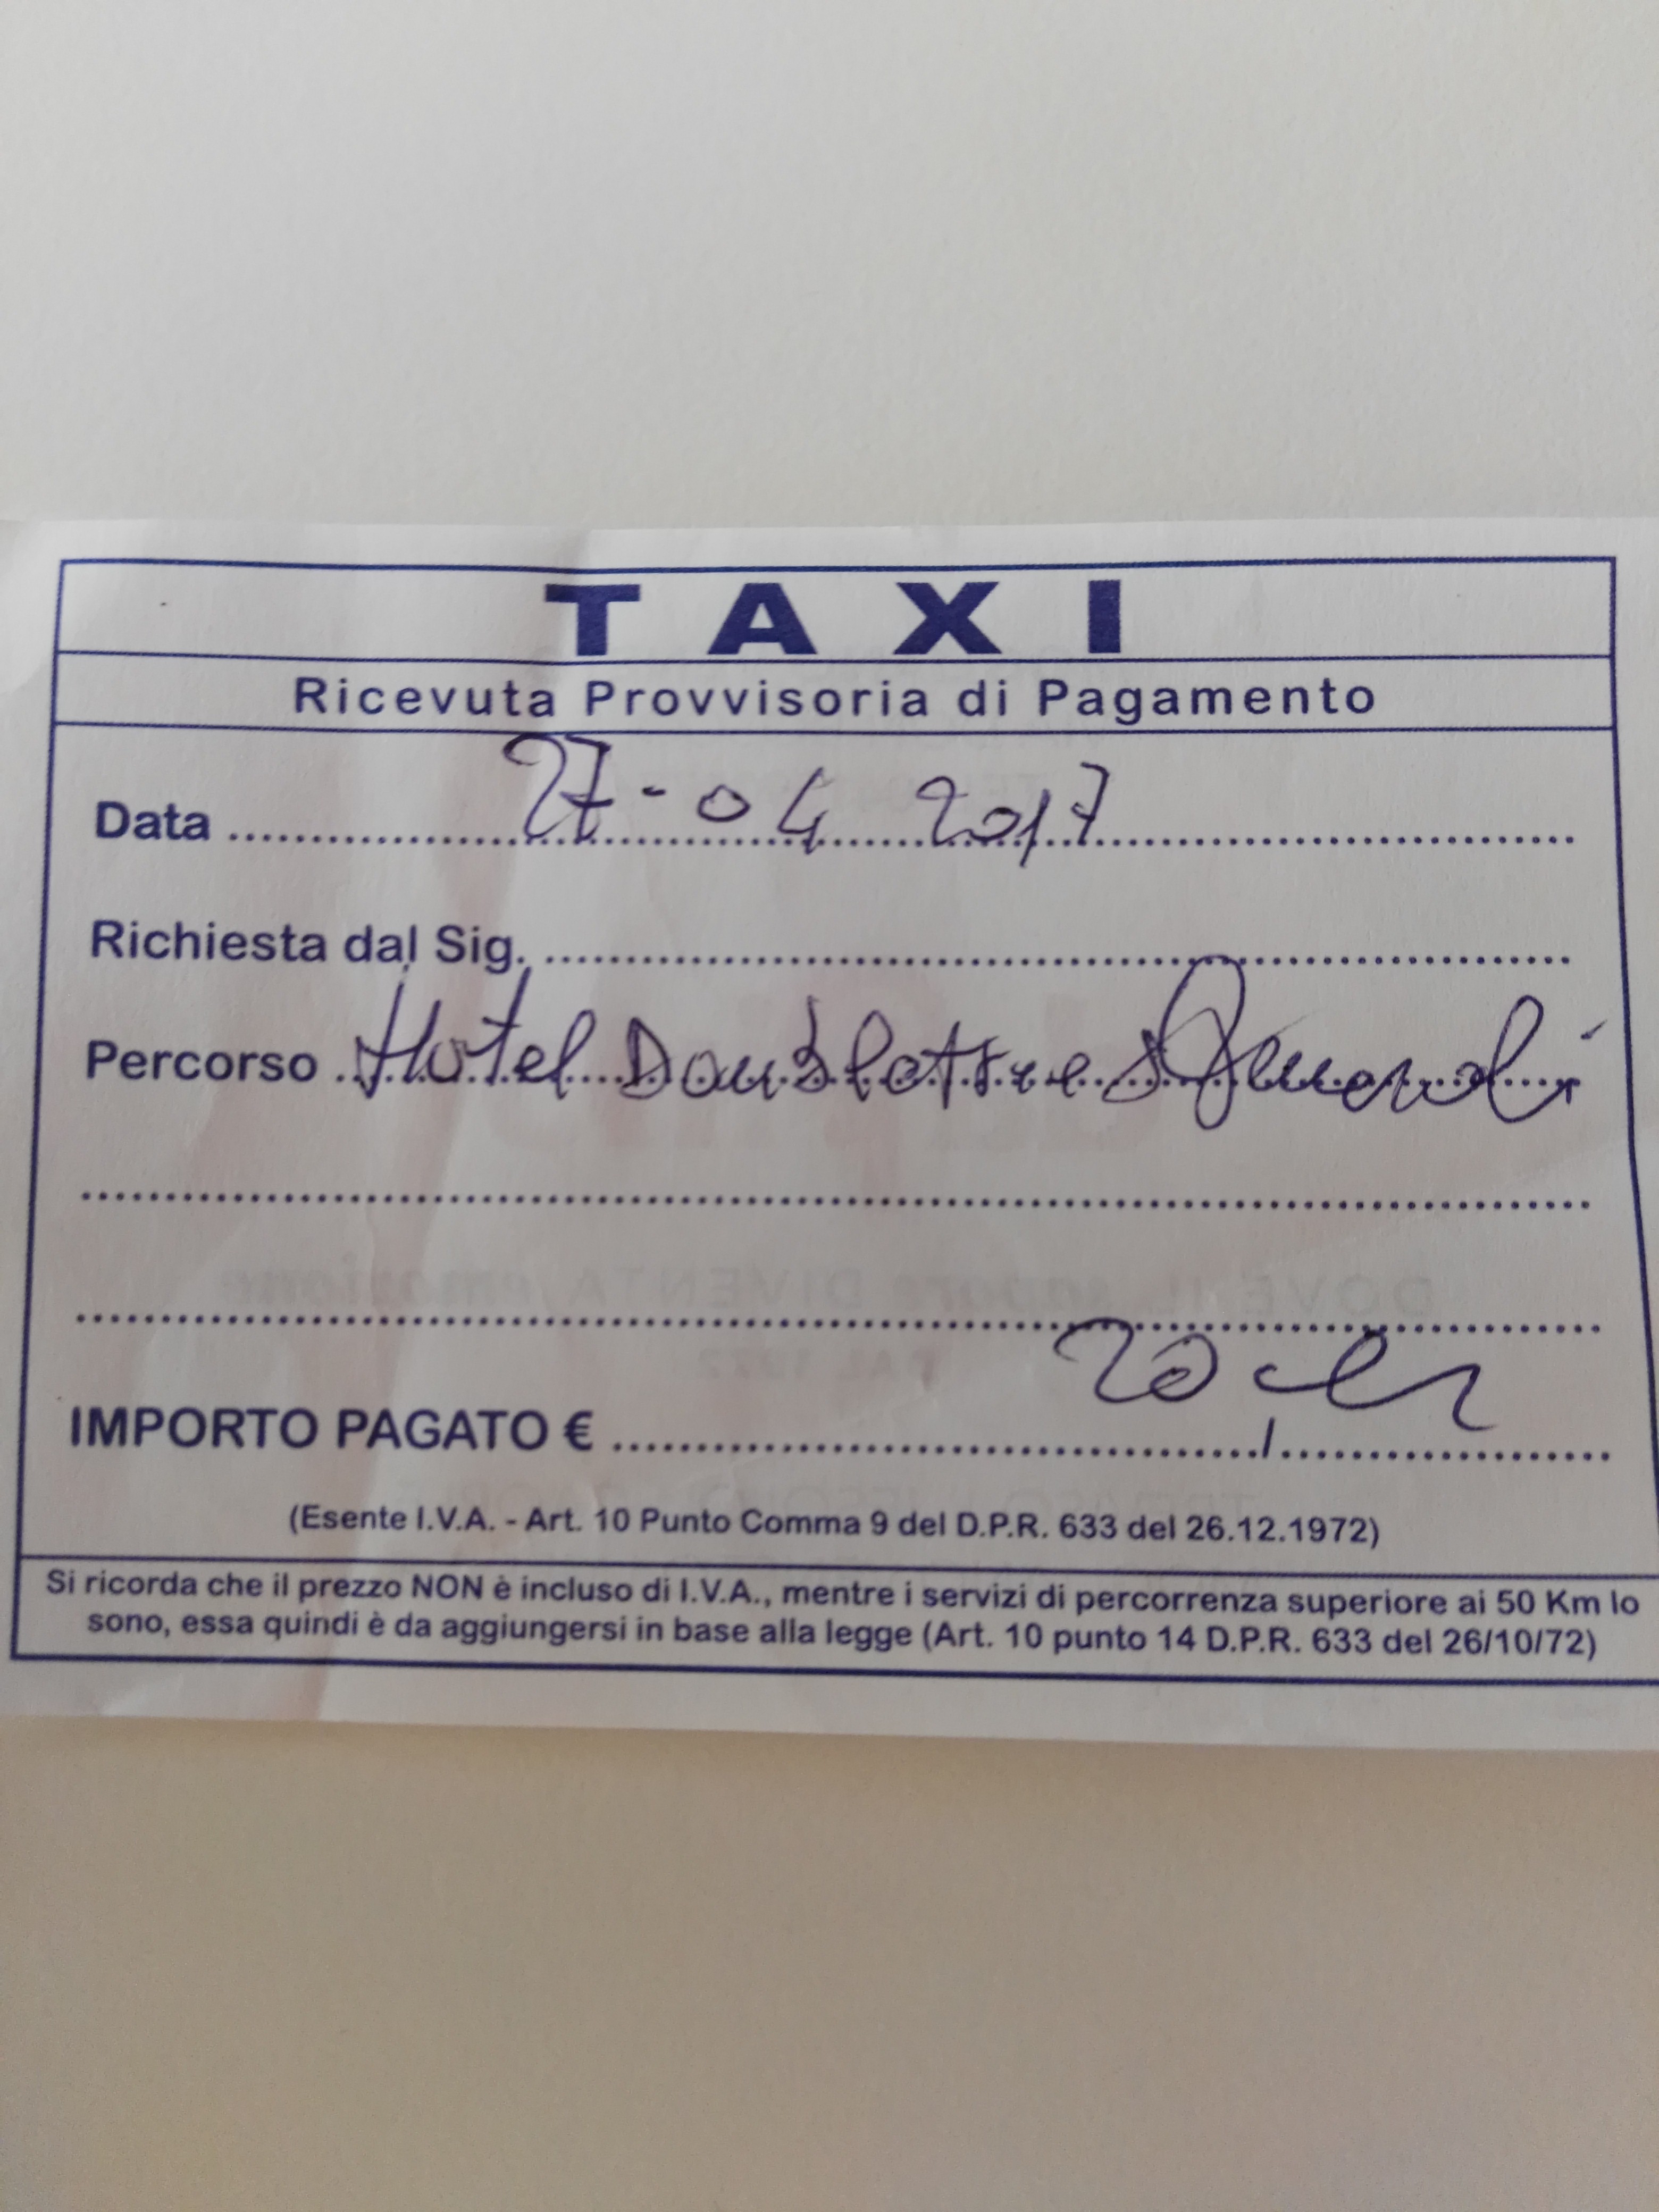 TAXI
Ricevuta Provvisoria di Pagamento
Data 27-04 2017
Richiesta dal Sig.
Percorso Hotel Doubletree
IMPORTO PAGATO € 20
(Esente I.V.A. - Art. 10 Punto Comma 9 del D.P.R. 633 del 26.12.1972)
Si ricorda che il prezzo NON è incluso di I.V.A., mentre i servizi di percorrenza superiore ai 50 Km lo
sono, essa quindi è da aggiungersi in base alla legge (Art. 10 punto 14 D.P.R. 633 del 26/10/72)